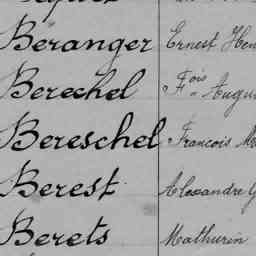 Béranger Ernest Hen
Berechel Fois Augu
Bereschel Francois M
Berest Alexandre G
Berets Mathurin